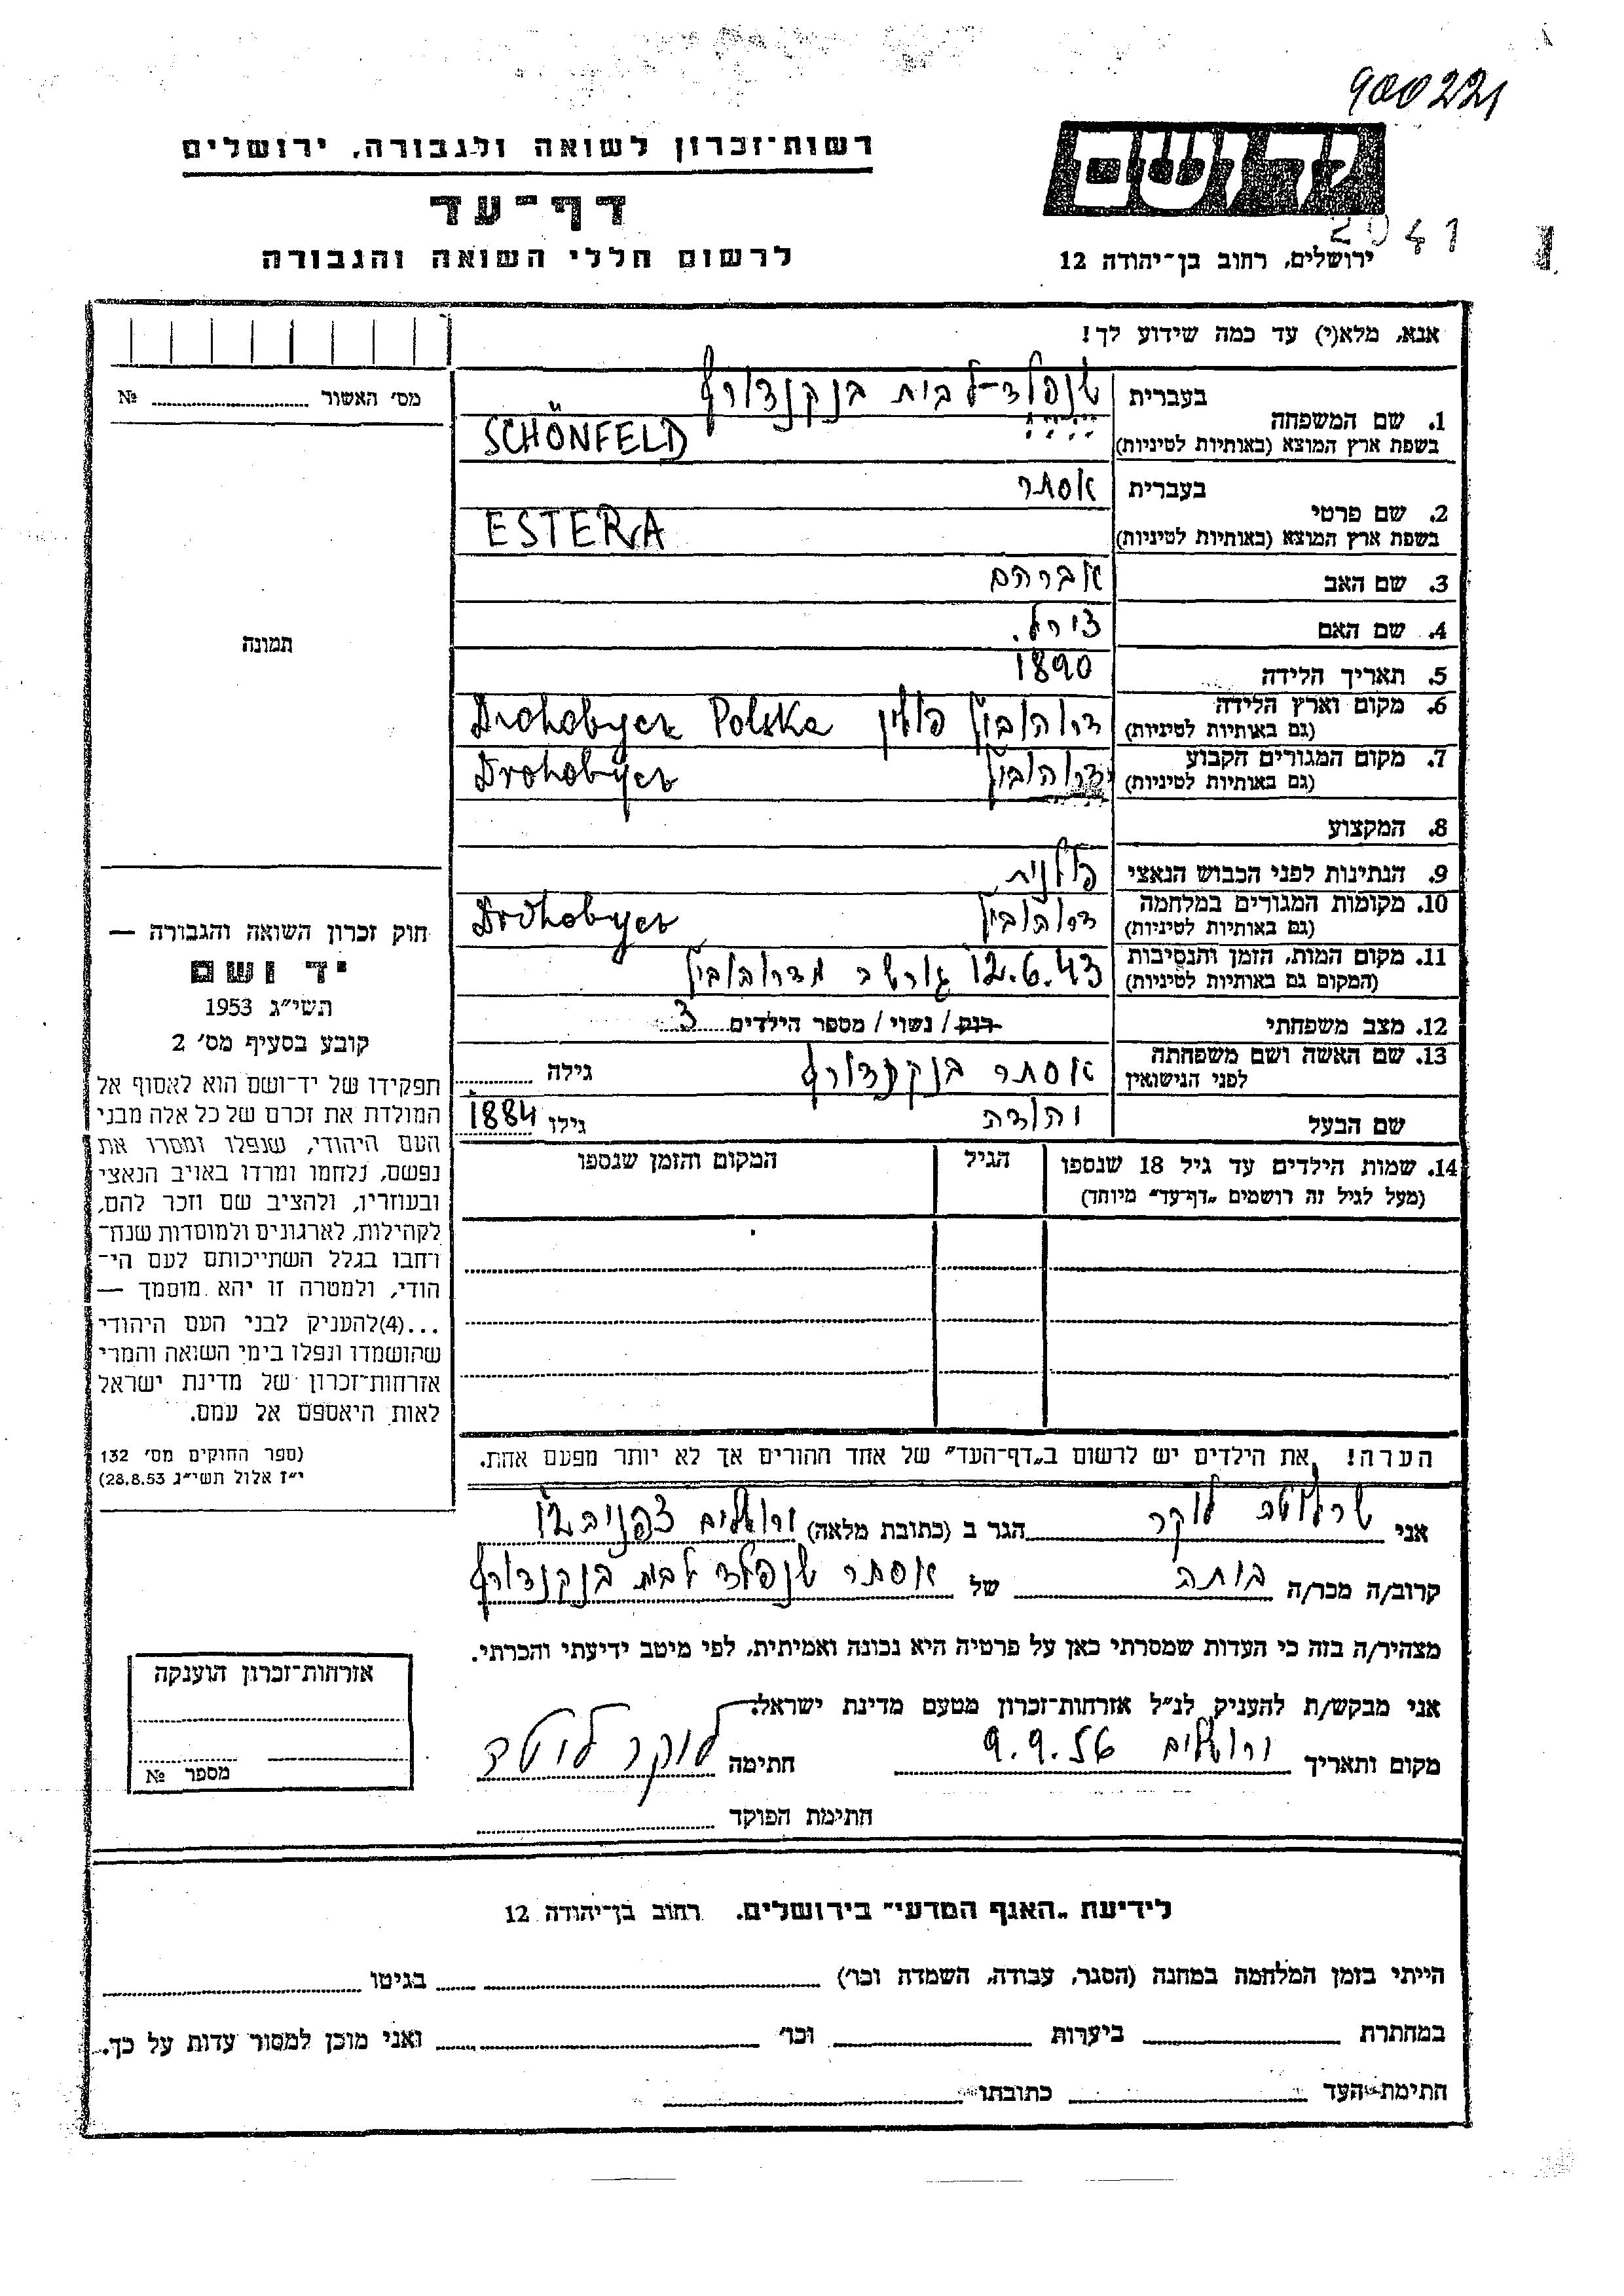 900221
רשות־זכרון לשואה ולגבורה, ירושלים
יד ושם
דף־עד
2041
לרשום חללי השואה והגבורה
ירושלים, רחוב בן־יהודה 12
אנא, מלא(י) עד כמה שידוע לך!
מס' האשור № 
1. שם המשפחה בעברית שנפלד-לבית בנקנדורף
בשפת ארץ המוצא (באותיות לטיניות) SCHÖNFELD
2. שם פרטי בעברית אסתר
בשפת ארץ המוצא (באותיות לטיניות) ESTERA
3. שם האב אברהם
4. שם האם
תמונה
5. תאריך הלידה 1890
6. מקום וארץ הלידה דרוהוביץ פולין Drohobycz Polska
(גם באותיות לטיניות)
7. מקום המגורים הקבוע דרוהוביץ Drohobycz
(גם באותיות לטיניות)
8. המקצוע
9. הנתינות לפני הכבוש הנאצי פולנית
10. מקומות המגורים במלחמה דרוהוביץ Drohobycz
(גם באותיות לטיניות)
11. מקום המות, הזמן והנסיבות 12.6.43 גורשה מדרוהוביץ
(המקום גם באותיות לטיניות)
12. מצב משפחתי רווק / נשוי / מספר הילדים 3
13. שם האשה ושם משפחתה לפני הנישואין אסתר בנקנדורף גילה
שם הבעל יהודה גילו 1884
14. שמות הילדים עד גיל 18 שנספו הגיל המקום והזמן שנספו
(מעל לגיל זה רושמים „דף־עד" מיוחד)
הערה! את הילדים יש לרשום ב„דף־העד" של אחד ההורים אך לא יותר מפעם אחת.
חוק זכרון השואה והגבורה —
יד ושם
תשי"ג 1953
קובע בסעיף מס' 2
תפקידו של יד־ושם הוא לאסוף אל
המולדת את זכרם של כל אלה מבני
העם היהודי, שנפלו ומסרו את
נפשם, נלחמו ומרדו באויב הנאצי
ובעוזריו, ולהציב שם וזכר להם,
לקהילות, לארגונים ולמוסדות שנח־
רחבו בגלל השתייכותם לעם הי־
הודי, ולמטרה זו יהא מוסמך —
...(4)להעניק לבני העם היהודי
שהושמדו ונפלו בימי השואה והמרי
אזרחות־זכרון של מדינת ישראל
לאות היאספם אל עמם.
(ספר החוקים מס' 132
י"ז אלול תשי"ג 28.8.53)
אני שרלוטה לוקר הגר ב (כתובת מלאה) ירושלים צפניה 12
קרוב/ה מכר/ה בתה של אסתר שנפלד לבית בנקנדורף
מצהיר/ה בזה כי העדות שמסרתי כאן על פרטיה היא נכונה ואמיתית, לפי מיטב ידיעתי והכרתי.
אני מבקש/ת להעניק לנ"ל אזרחות־זכרון מטעם מדינת ישראל.
מקום ותאריך ירושלים 9.9.56 חתימה לוקר
חתימת הפוקד
אזרחות־זכרון הוענקה
מספר №
לידיעת „האגף המדעי" בירושלים. רחוב בן־יהודה 12
הייתי בזמן המלחמה במחנה (הסגר, עבודה, השמדה וכו') בגיטו
במחתרת ביערות וכו' ואני מוכן למסור עדות על כך.
חתימת־העד כתובתו